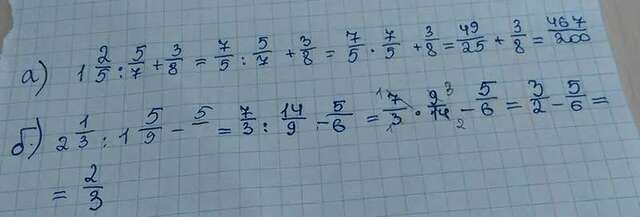 а) 1 2/5 : 5/7 + 3/8 = 7/5 : 5/7 + 3/8 = 7/5 · 7/5 + 3/8 = 49/25 + 3/8 = 467/200
б) 2 1/3 : 1 5/9 - 5/ = 7/3 : 14/9 - 5/6 = 7/3 · 9/14 - 5/6 = 3/2 - 5/6 =
= 2/3